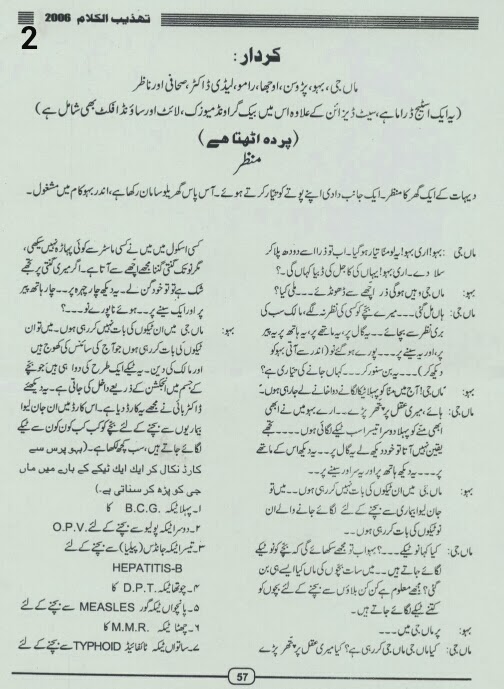 تہذیب الکلام 2006
2
کردار:
ماں جی، بہو، پڑوسن، اوجھا، رامو، لیڈی ڈاکٹر، صحافی اور ناظر
(یہ ایک اسٹیج ڈراما ہے، سیٹ ڈیزائن کے علاوہ اس میں بیک گراونڈ میوزک، لائٹ اور ساؤنڈ افلٹ بھی شامل ہے)
(پردہ اٹھتا ہے)
منظر
دیہات کے ایک گھر کا منظر۔ ایک جانب دادی اپنے پوتے کو تیار کرتے ہوئے۔ آس پاس گھریلو سامان رکھا ہے، اندر بہو کام میں مشغول۔
ماں جی :بہو! اری بہو! یہ لو منا تیار ہو گیا۔ اب تو ذرا اسے دودھ پلا کر
سلا دے۔ اری بہو! یہاں کی کاجل کی ڈبیا کہاں گی؟
بہو: ماں جی وہیں ہوگی ذرا اچھے سے ڈھونڈئے۔۔۔ ملی کیا؟
ماں جی: ہاں مل گئی۔۔۔ میرے پوتے کو کسی کی نظر نہ لگے، مالک سب کی
بری نظر سے بچائے۔۔ یہ گال پر، یہ ماتھے پر، یہ ہاتھ پر یہ پیر
پر، اور یہ سینے پر۔۔۔ پورے ہو گئے نو (اندر سے آتی بہو کو
دیکھ کر)۔۔ یہ بن سنور کر۔۔۔ کہاں جانے کی تیاری ہے؟
بہو: ماں جی! آج میں منا کو پہلا ٹیکا لگانے دوا خانے لے جا رہی ہوں۔
ماں جی: ہائے، میری عقل پر پتھر پڑے۔۔ ارے بہو میں نے ابھی
ابھی منے کو پہلا دوسرا تیسرا سب ٹیکے لگائی ہوں۔۔۔۔ تجھے
یقین نہیں آتا تو خود دیکھ لے یہ گال پر۔۔ یہ دیکھ اس کے ماتھے
پر۔۔۔ یہ دیکھ ہاتھ پر اور یہ سر اور سینے پر۔۔
بہو: ماں جی میں ان ٹیکوں کی بات نہیں کر رہی ہوں۔۔ میں تو
جان لیوا بیماری سے بچنے کے لئے لگائے جانے والے ان
نو ٹیکوں کی بات کر رہی ہوں۔
ماں جی: کیا کہا نو ٹیکے۔۔۔؟ بہو اب تو مجھے سکھائے گی کہ بچے کو نو ٹیکے
لگائے جاتے ہیں۔۔ میں سات بچوں کی ماں کیا ایسے ہی بن
گئی؟ مجھے معلوم ہے کن کن بلاؤں سے بچنے کے لئے بچوں کو
کتنے ٹیکے لگائے جاتے ہیں۔
بہو: پر ماں جی میں۔۔۔
ماں جی: کیا ماں جی ماں جی کر رہی ہے؟ کیا میری عقل پر پتھر پڑے
کسی اسکول میں میں نے کسی ماسٹر سے کوئی پہاڑہ نہیں سیکھی،
مگر نو تک گنتی گننا مجھے اچھے سے آتا ہے۔ اگر میری گنتی پر تجھے
شک ہے تو تو خود گن لے۔ یہ دیکھ چار چہرہ پر۔۔ چار ہاتھ پیر
پر اور ایک سینے پر۔۔ ہوئے نا پورے نو۔۔؟
بہو: ماں جی میں ان ٹیکوں کی بات نہیں کر رہی ہوں۔۔ میں تو ان
ٹیکوں کی بات کر رہی ہوں جو آج کی سائنس کی کھوج ہیں
اور مالک کی دین۔ یہ ٹیکے ایک طرح کی دوا ہی ہیں جو بچے
کے جسم میں انجکشن کے ذریعے داخل کی جاتی ہے۔ یہ دیکھئے
ڈاکٹر بائی نے مجھے یہ کارڈ دیا ہے۔ اس کارڈ میں ان جان لیوا
بیماریوں سے بچنے کے لئے بچے کو کب کب کون کون سے ٹیکے
لگائے جاتے ہیں، سب کچھ لکھا ہے۔ (بہو پرس سے
کارڈ نکال کر ایک ایک ٹیکے کے بارے میں ماں
جی کو پڑھ کر سناتی ہے۔)
۱۔ پہلا ٹیکہ B.C.G. کا
۲۔ دوسرا ٹیکہ پولیو سے بچنے کے لئے O.P.V.
۳۔ تیسرا ٹیکہ جانڈس (پیلیا) سے بچنے کے لئے
HEPATITIS-B
۴۔ چوتھا ٹیکہ D.P.T. کا
۵۔ پانچواں ٹیکہ گور MEASLES سے بچنے کے لئے
۶۔ چھٹا ٹیکہ M.M.R. کا
۷۔ ساتواں ٹیکہ ٹائفائیڈ TYPHOID سے بچنے کے لئے
57